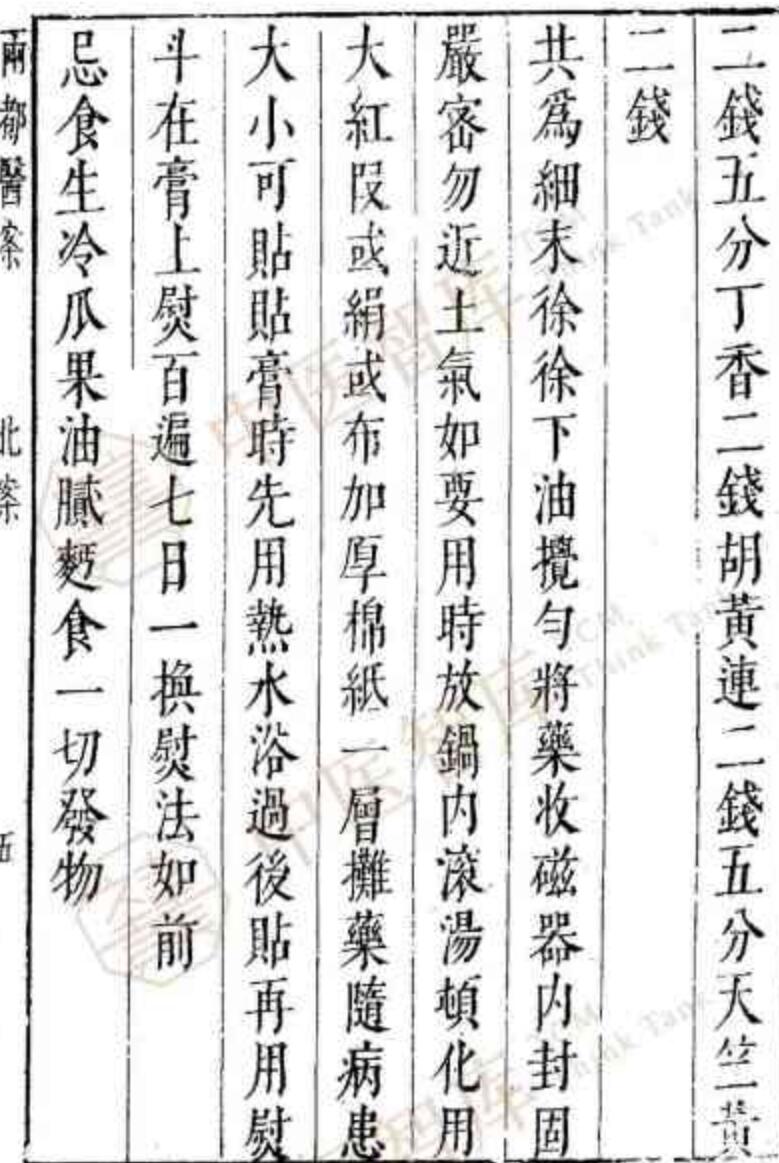 二錢五分丁香二錢胡黃連二錢五分天竺黃
二錢
共爲細末徐徐下油攪勻將藥收磁器內封固
嚴密勿近土氣如要用時放鍋內滾湯頓化用
大紅段或絹或布加厚棉紙一層攤藥隨病患
大小可貼貼膏時先用熱水浴過後貼再用熨
斗在膏上熨百遍七日一換熨法如前
忌食生冷瓜果油膩麪食一切發物
兩都醫案 北案 五
中医智库
TCM Think Tank
中医智库
TCM Think Tank
TCM Think Tank